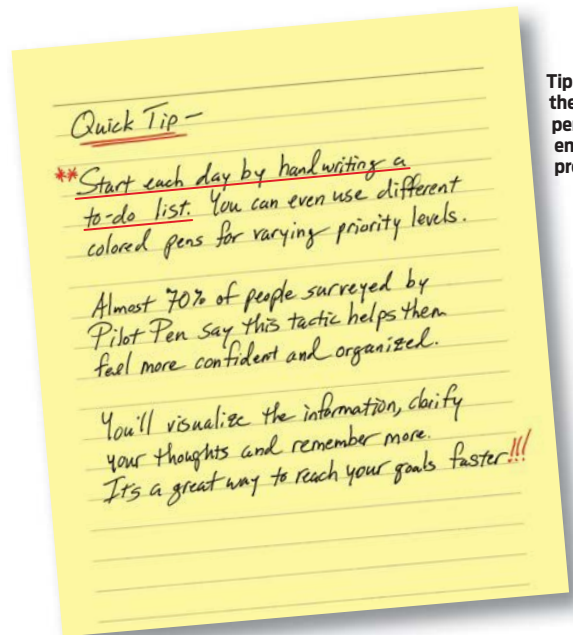 Quick Tip -
** Start each day by handwriting a
to-do list. You can even use different
colored pens for varying priority levels.
Almost 70% of people surveyed by
Pilot Pen say this tactic helps them
feel more confident and organized.
You'll visualize the information, clarify
your thoughts and remember more.
It's a great way to reach your goals faster!!!
Tip
the
per
en
pro